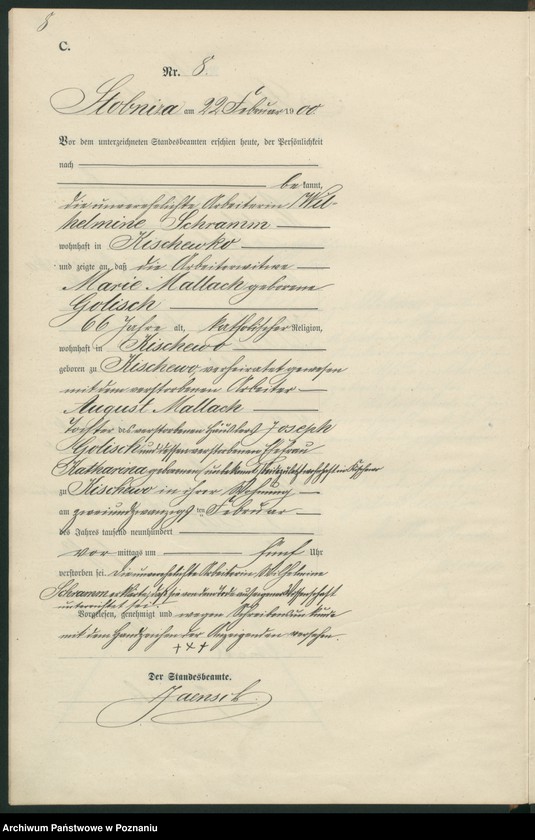 8
C.
Nr. 8.
Stobnica am 22 Februar 1900
Vor dem unterzeichneten Standesbeamten erschien heute, der Persönlichkeit
nach
bekannt,
die unverehelichte Arbeiterin Wil-
helmine Schramm
wohnhaft in Kischewko
und zeigte an, daß die Arbeiterwitwe
Marie Mallach geborene
Golisch
66 Jahre alt, katholischer Religion,
wohnhaft in Kischewo
geboren zu Kischewo, verheiratet gewesen
mit dem verstorbenen Arbeiter
August Mallach
Tochter des verstorbenen Häuslers Joseph
Golisch und dessen verstorbenen Ehefrau
Katharina geborenen unbekannt, zuletzt wohnhaft in
zu Kischewo in ihrer Wohnung
am zweiundzwanzigsten Februar
des Jahres tausend neunhundert
vor mittags um fünf Uhr
verstorben sei. Die unverehelichte Arbeiterin Wilhelmine
Schramm erklärte, daß sie von dem Tode aus eigener Wissenschaft
unterrichtet sei.
Vorgelesen, genehmigt und wegen Schreibensunkunde
mit dem Handzeichen der Anzeigenden versehen.
+++
Der Standesbeamte.
Jaensch
Archiwum Państwowe w Poznaniu